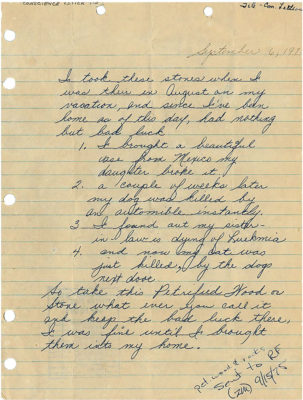 CONSCIENCE LETTER
September 6, 197
I took these stones when I
was there in August on my
vacation, and since I've been
home as of this day, had nothing
but bad luck
1. I brought a beautiful
vase from Mexico my
daughter broke it,
2. a couple of weeks later
my dog was killed by
an automible instantly.
3 I found out my sister-
in-law is dying of Luekmia
4. and now my cat was
just killed, by the dog
next door
So take this Petrified Wood or
Stone what ever you call it
and keep the bad luck there,
I was fine until I brought
them into my home.
pet wood & rocks
sent to PF
9/15/75